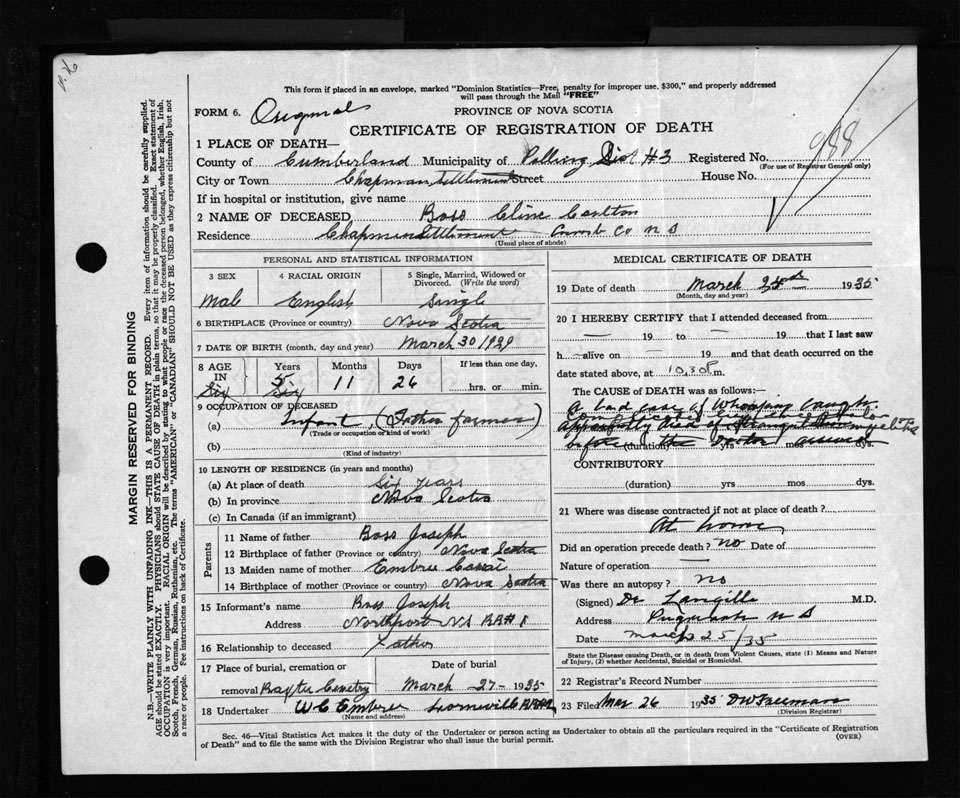 This form if placed in an envelope, marked "Dominion Statistics—Free, penalty for improper use, $300," and properly addressed
will pass through the Mail "FREE"
FORM 6. Original PROVINCE OF NOVA SCOTIA
CERTIFICATE OF REGISTRATION OF DEATH
988
1 PLACE OF DEATH—
County of Cumberland Municipality of Polling Dist #3 Registered No.
(For use of Registrar General only)
City or Town Chapman Settlement Street House No.
If in hospital or institution, give name
2 NAME OF DECEASED Bass Cline Carlton
Residence Chapman Settlement Cumb Co N S
(Usual place of abode)
PERSONAL AND STATISTICAL INFORMATION
3 SEX 4 RACIAL ORIGIN 5 Single, Married, Widowed or Divorced. (Write the word)
Male English Single
6 BIRTHPLACE (Province or country) Nova Scotia
7 DATE OF BIRTH (month, day and year) March 30/1929
8 AGE IN Years Months Days If less than one day,
Six 5 11 26 hrs. or min.
Six
9 OCCUPATION OF DECEASED
(a) Infant, (Father farmer)
(Trade or occupation or kind of work)
(b)
(Kind of industry)
10 LENGTH OF RESIDENCE (in years and months)
(a) At place of death Six years
(b) In province Nova Scotia
(c) In Canada (if an immigrant)
Parents
11 Name of father Bass Joseph
12 Birthplace of father (Province or country) Nova Scotia
13 Maiden name of mother Embree
14 Birthplace of mother (Province or country) Nova Scotia
15 Informant's name Bass Joseph
Address Northport NS RR#1
16 Relationship to deceased Father
17 Place of burial, cremation or Date of burial
removal Baxter Cemetry March 27- 1935
18 Undertaker W C Embree
(Name and address)
MEDICAL CERTIFICATE OF DEATH
19 Date of death March 1935
(Month, day and year)
20 I HEREBY CERTIFY that I attended deceased from
— 19 to — 19 that I last saw
h — alive on — 19 and that death occurred on the
date stated above, at 10.30 P.m.
The CAUSE of DEATH was as follows:—
A bad case of Whooping cough
apparently died of
before the Doctor arrived
(duration) yrs mos dys.
CONTRIBUTORY
(duration) yrs mos dys.
21 Where was disease contracted if not at place of death?
At home
Did an operation precede death? no Date of
Nature of operation —
Was there an autopsy? No
(Signed) Dr Langille M.D.
Address Pugwash N S
Date March 25/35
State the Disease causing Death, or in death from Violent Causes, state (1) Means and Nature
of Injury, (2) whether Accidental, Suicidal or Homicidal.
22 Registrar's Record Number
23 Filed Mar 26 1935 D W Freeman
(Division Registrar)
Sec. 46—Vital Statistics Act makes it the duty of the Undertaker or person acting as Undertaker to obtain all the particulars required in the "Certificate of Registration
of Death" and to file the same with the Division Registrar who shall issue the burial permit. (OVER)
MARGIN RESERVED FOR BINDING
N.B.—WRITE PLAINLY WITH UNFADING INK—THIS IS A PERMANENT RECORD. Every item of information should be carefully supplied.
AGE should be stated EXACTLY. PHYSICIANS should STATE CAUSE OF DEATH in plain terms, so that it may be properly classified. Exact statement of
OCCUPATION is very important. RACIAL ORIGIN will be described by stating to what people or race the deceased person belonged, whether English, Irish,
Scotch, French, German, Russian, Ruthenian, etc. The terms "AMERICAN" or "CANADIAN" SHOULD NOT BE USED as they express citizenship but not
a race or people. Fee instructions on back of Certificate.